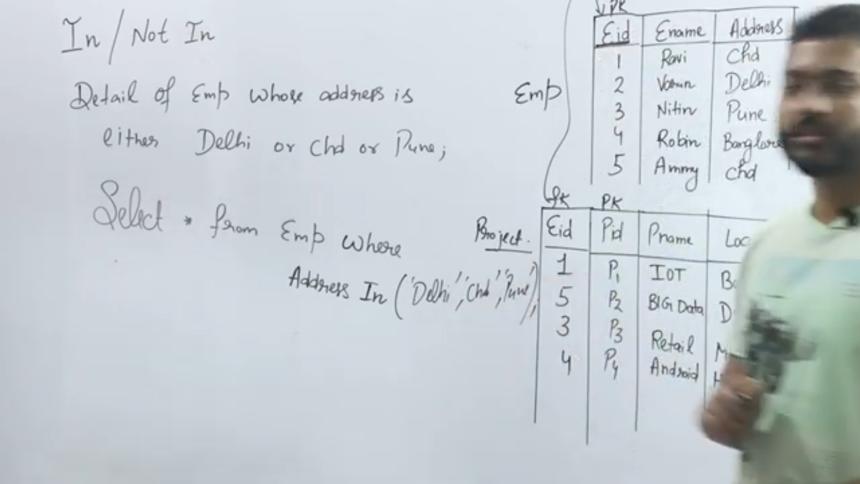 In / Not In
Detail of Emp whose address is
either Delhi or Chd or Pune;
Select * from Emp where
Address In ('Delhi','Chd','Pune');
Emp
PK
Eid Ename Address
1 Ravi Chd
2 Varun Delhi
3 Nitin Pune
4 Robin Banglore
5 Ammy Chd
Project
PK
Eid Pid Pname
1 P1 IOT
5 P2 BIG Data
3 P3 Retail
4 P4 Android